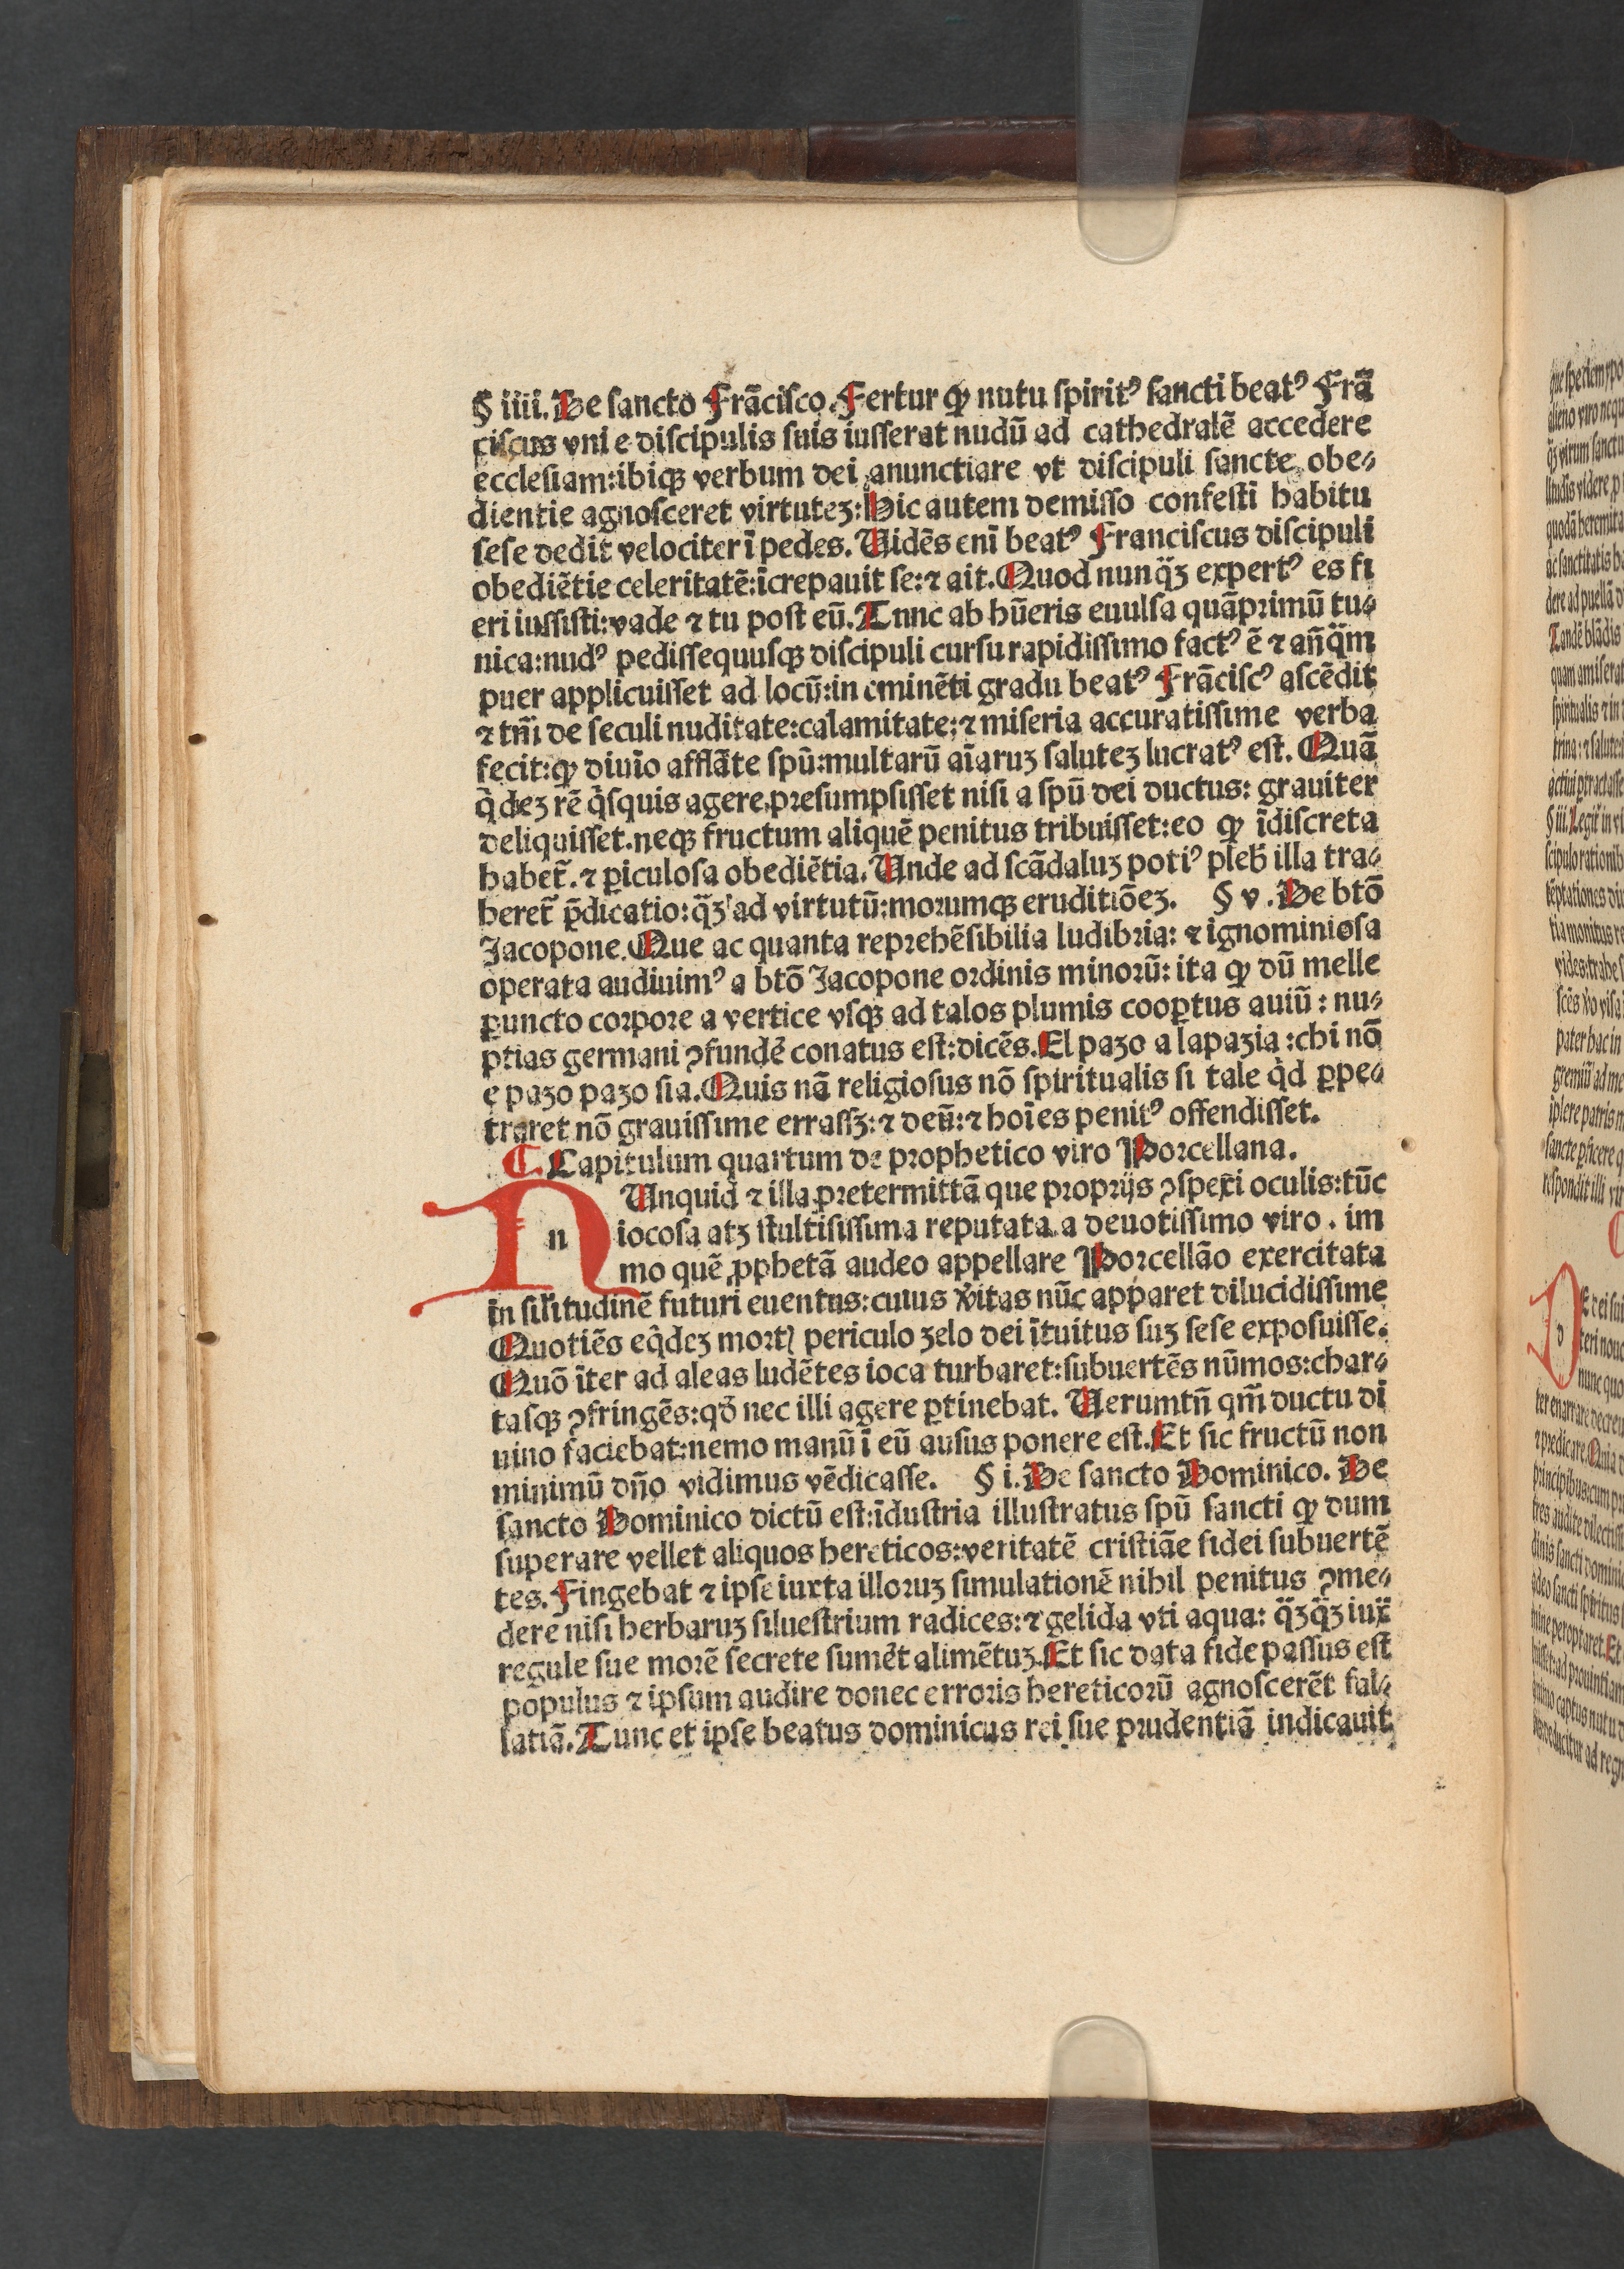 § iiii. De sancto Frãciſco. Fertur ꝙ nutu ſpiritꝰ ſancti beatꝰ Frã
ciſcus vni e diſcipulis ſuis iuſſerat nudũ ad cathedralẽ accedere
eccleſiam:ibiqꝫ verbum dei anunctiare vt diſcipuli ſancte obe⸗
dientie agnoſceret virtuteꝫ:Hic autem demiſſo confeſti habitu
ſeſe dedit velociter ĩ pedes. Uidẽs enĩ beatꝰ Franciſcus diſcipuli
obediẽtie celeritatẽ:ĩcrepauit ſe:⁊ ait. Quod nunq̃ꝫ expertꝰ es fi
eri iuſſiſti:vade ⁊ tu poſt eũ. Tunc ab hũeris euulſa quãprimũ tu⸗
nica:nudꝰ pediſſequuſqꝫ diſcipuli curſu rapidiſſimo factꝰ ẽ ⁊ añq̃m
puer applicuiſſet ad locũ:in eminẽti gradu beatꝰ Frãciſcꝰ aſcẽdit
⁊ tm̃ de ſeculi nuditate:calamitate:⁊ miſeria accuratiſſime verba
fecit:ꝙ diuĩo afflãte ſpũ:multarũ aĩaruꝫ ſaluteꝫ lucratꝰ eſt. Quã
q̇deꝫ rẽ q̇ſquis agere preſumpſiſſet niſi a ſpũ dei ductus: grauiter
deliquiſſet.neqꝫ fructum aliquẽ penitus tribuiſſet:eo ꝙ ĩdiſcreta
habet̃. ⁊ ꝑiculoſa obediẽtia. Unde ad ſcãdaluꝫ potiꝰ pleb̃ illa tra⸗
heret̃ p̃dicatio:q̃ꝫ ad virtutũ:morumqꝫ eruditiõeꝫ. § v. De btõ
Jacopone. Que ac quanta reprehẽſibilia ludibria: ⁊ ignominioſa
operata audiuimꝰ a btõ Jacopone ordinis minorũ: ita ꝙ dũ melle
puncto corpore a vertice vſqꝫ ad talos plumis cooꝑtus auiũ : nu⸗
ptias germani ꝯfundẽ conatus eſt:dicẽs. El pazo a lapazia :chi nõ
e pazo pazo ſia. Quis nã religioſus nõ ſpiritualis ſi tale q̇d ꝑpe⸗
traret nõ grauiſſime erraſſꝫ: ⁊ deũ: ⁊ hoĩes penitꝰ offendiſſet.
Capitulum quartum de prophetico viro Porcellana.
n
Unquid ⁊ illa pretermittã que proprijs ꝯſpexi oculis:tũc
iocoſa atꝫ ſtultiſiſſima reputata a deuotiſſimo viro . im
mo quẽ ꝓphetã audeo appellare Porcellão exercitata
in ſil̃itudinẽ futuri euentus:cuius v̾itas nũc apparet dilucidiſſime
Quotiẽs eq̇deꝫ mortꝭ periculo zelo dei ĩtuitus ſuꝫ ſeſe expoſuiſſe.
Quõ ĩter ad aleas ludẽtes ioca turbaret:ſubuertẽs nũmos:char⸗
taſqꝫ ꝯfringẽs:qð nec illi agere ꝑtinebat. Uerumtñ qm̃ ductu di
uino faciebat:nemo manũ ĩ eũ auſus ponere eſt. Et ſic fructũ non
minimũ dño vidimus vẽdicaſſe. § i. De ſancto Dominico. De
ſancto Dominico dictũ eſt:ĩduſtria illuſtratus ſpũ ſancti ꝙ dum
ſuperare vellet aliquos hereticos:veritatẽ criſtiãe fidei ſubuertẽ
tes. Fingebat ⁊ ipſe iuxta illoruꝫ ſimulationẽ nihil penitus ꝯme⸗
dere niſi herbaruꝫ ſilueſtrium radices: ⁊ gelida vti aqua: q̃ꝫq̃ꝫ iux̃
regule ſue morẽ ſecrete ſumẽt alimẽtuꝫ. Et ſic data fide paſſus eſt
populus ⁊ ipſum audire donec erroris hereticorũ agnoſcerẽt fal⸗
ſatiã. Tunc et ipſe beatus dominicus rei ſue prudentiã indicauit